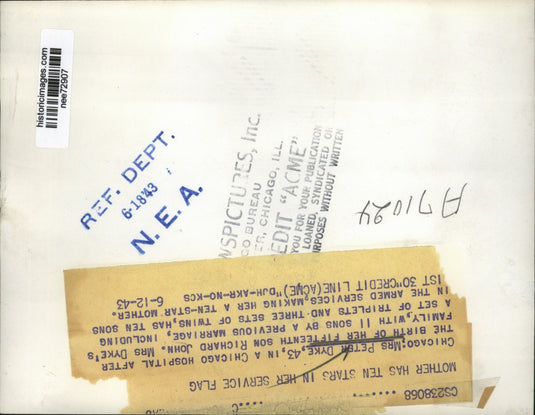 historicimages.com
nee72907
REF. DEPT.
6-18'43
N. E. A.
WSPICTURES, Inc.
GO BUREAU
ER, CHICAGO, ILL.
EDIT "ACME"
YOU FOR YOUR PUBLICATION
LOANED, SYNDICATED OR
RPOSES WITHOUT WRITTEN
A71024
CS238068
MOTHER HAS TEN STARS IN HER SERVICE FLAG
CHICAGO,MRS PETER DYKE,43,IN A CHICAGO HOSPITAL AFTER
THE BIRTH OF HER FIFTEENTH SON RICHARD JOHN. MRS DYKE'S
FAMILY,WITH 11 SONS BY A PREVIOUS MARRIAGE, INCLUDING
A SET OF TRIPLETS AND THREE SETS OF TWINS,HAS TEN SONS
IN THE ARMED SERVICES,MAKING HER A TEN-STAR MOTHER.
1ST 30"CREDIT LINE(ACME)"DJH-AKR-NO-KCS 6-12-43